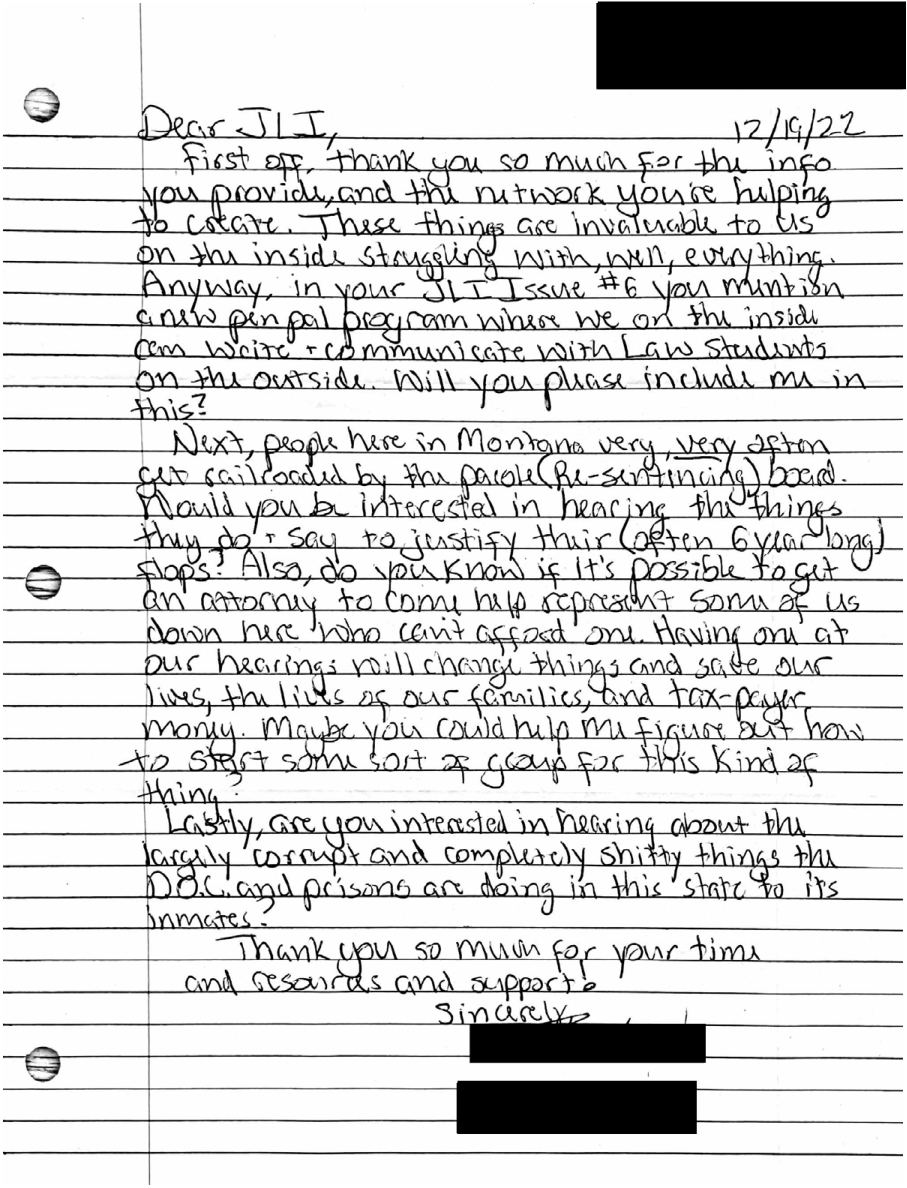 Dear JLI, 12/19/22
First off, thank you so much for the info
you provide, and the network you're helping
to create. These things are invaluable to us
on the inside struggling with, well, everything.
Anyway, in your JLI Issue #6 you mention
a new pen pal program where we on the inside
can write + communicate with Law Students
on the outside. Will you please include me in
this?
Next, people here in Montana very, very often
get railroaded by the parole (Re-sentencing) board.
Would you be interested in hearing the things
they do + say to justify their (often 6 year long)
flops? Also, do you know if it's possible to get
an attorney to come help represent some of us
down here who can't afford one. Having one at
our hearings will change things and save our
lives, the lives of our families, and tax-payer
money. Maybe you could help me figure out how
to start some sort of group for this kind of
thing?
Lastly, are you interested in hearing about the
largely corrupt and completely shitty things the
D.O.C. and prisons are doing in this state to its
inmates?
Thank you so much for your time
and resources and support!
Sincerely,